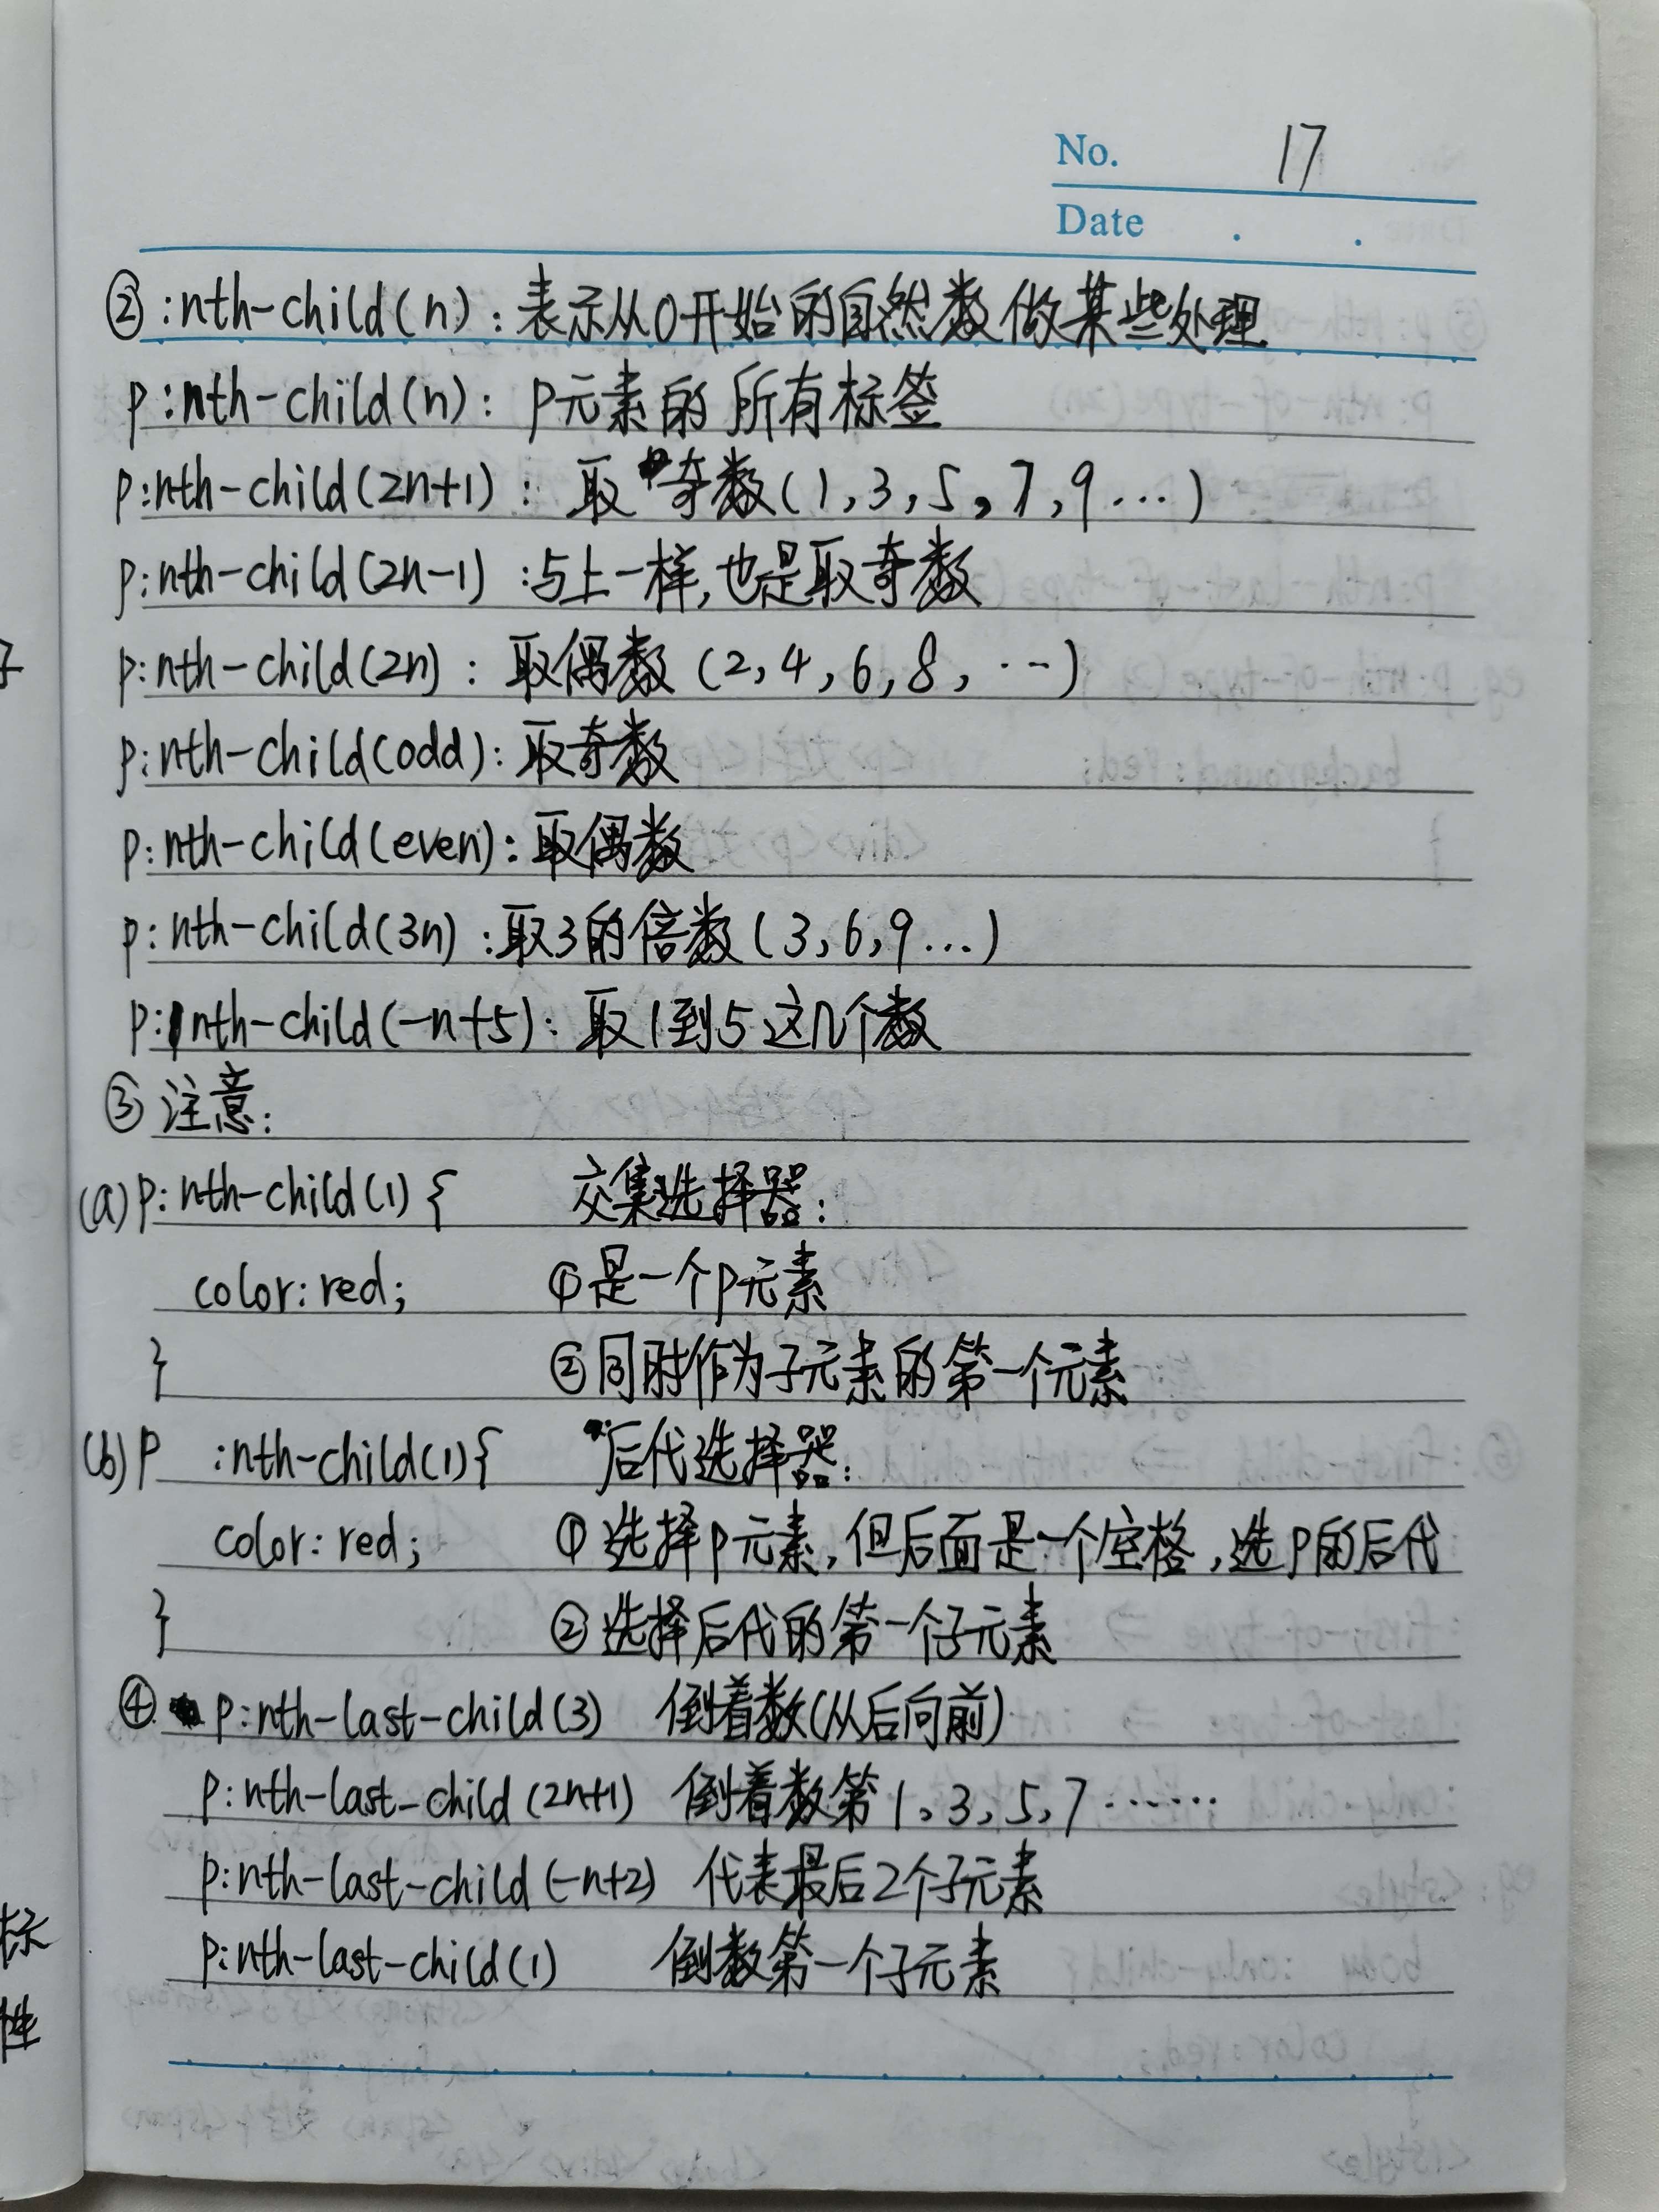 No. 17
Date . .
②:nth-child(n):表示从0开始的自然数做某些处理
p:nth-child(n): p元素的所有标签
p:nth-child(2n+1): 取奇数(1,3,5,7,9...)
p:nth-child(2n-1):与上一样,也是取奇数
p:nth-child(2n): 取偶数(2,4,6,8,...)
p:nth-child(odd):取奇数
p:nth-child(even):取偶数
p:nth-child(3n):取3的倍数(3,6,9...)
p:nth-child(-n+5):取1到5这几个数
③注意:
(a)p:nth-child(1){ 交集选择器:
color:red; ①是一个p元素
} ②同时作为子元素的第一个元素
(b)p :nth-child(1){ 后代选择器:
color:red; ①选择p元素,但后面是一个空格,选p的后代
} ②选择后代的第一个子元素
④. p:nth-last-child(3) 倒着数(从后向前)
p:nth-last-child(2n+1) 倒着数第1、3、5、7……
p:nth-last-child(-n+2) 代表最后2个子元素
p:nth-last-child(1) 倒数第一个子元素
标
性